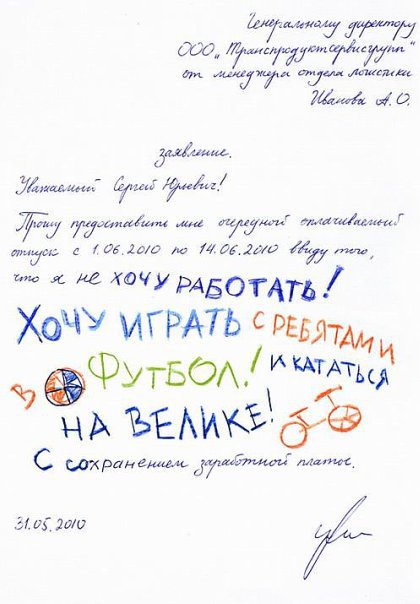 Генеральному директору
ООО „Транспродуктсервисгрупп"
от менеджера отдела логистики
Иванова А.О.
заявление.
Уважаемый Сергей Юрьевич!
Прошу предоставить мне очередной оплачиваемый
отпуск с 1.06.2010 по 14.06.2010 ввиду того,
что я не ХОЧУ РАБОТАТЬ!
ХОЧУ ИГРАТЬ С РЕБЯТАМИ
В ФУТБОЛ! И КАТАТЬСЯ
НА ВЕЛИКЕ!
С сохранением заработной платы.
31.05.2010